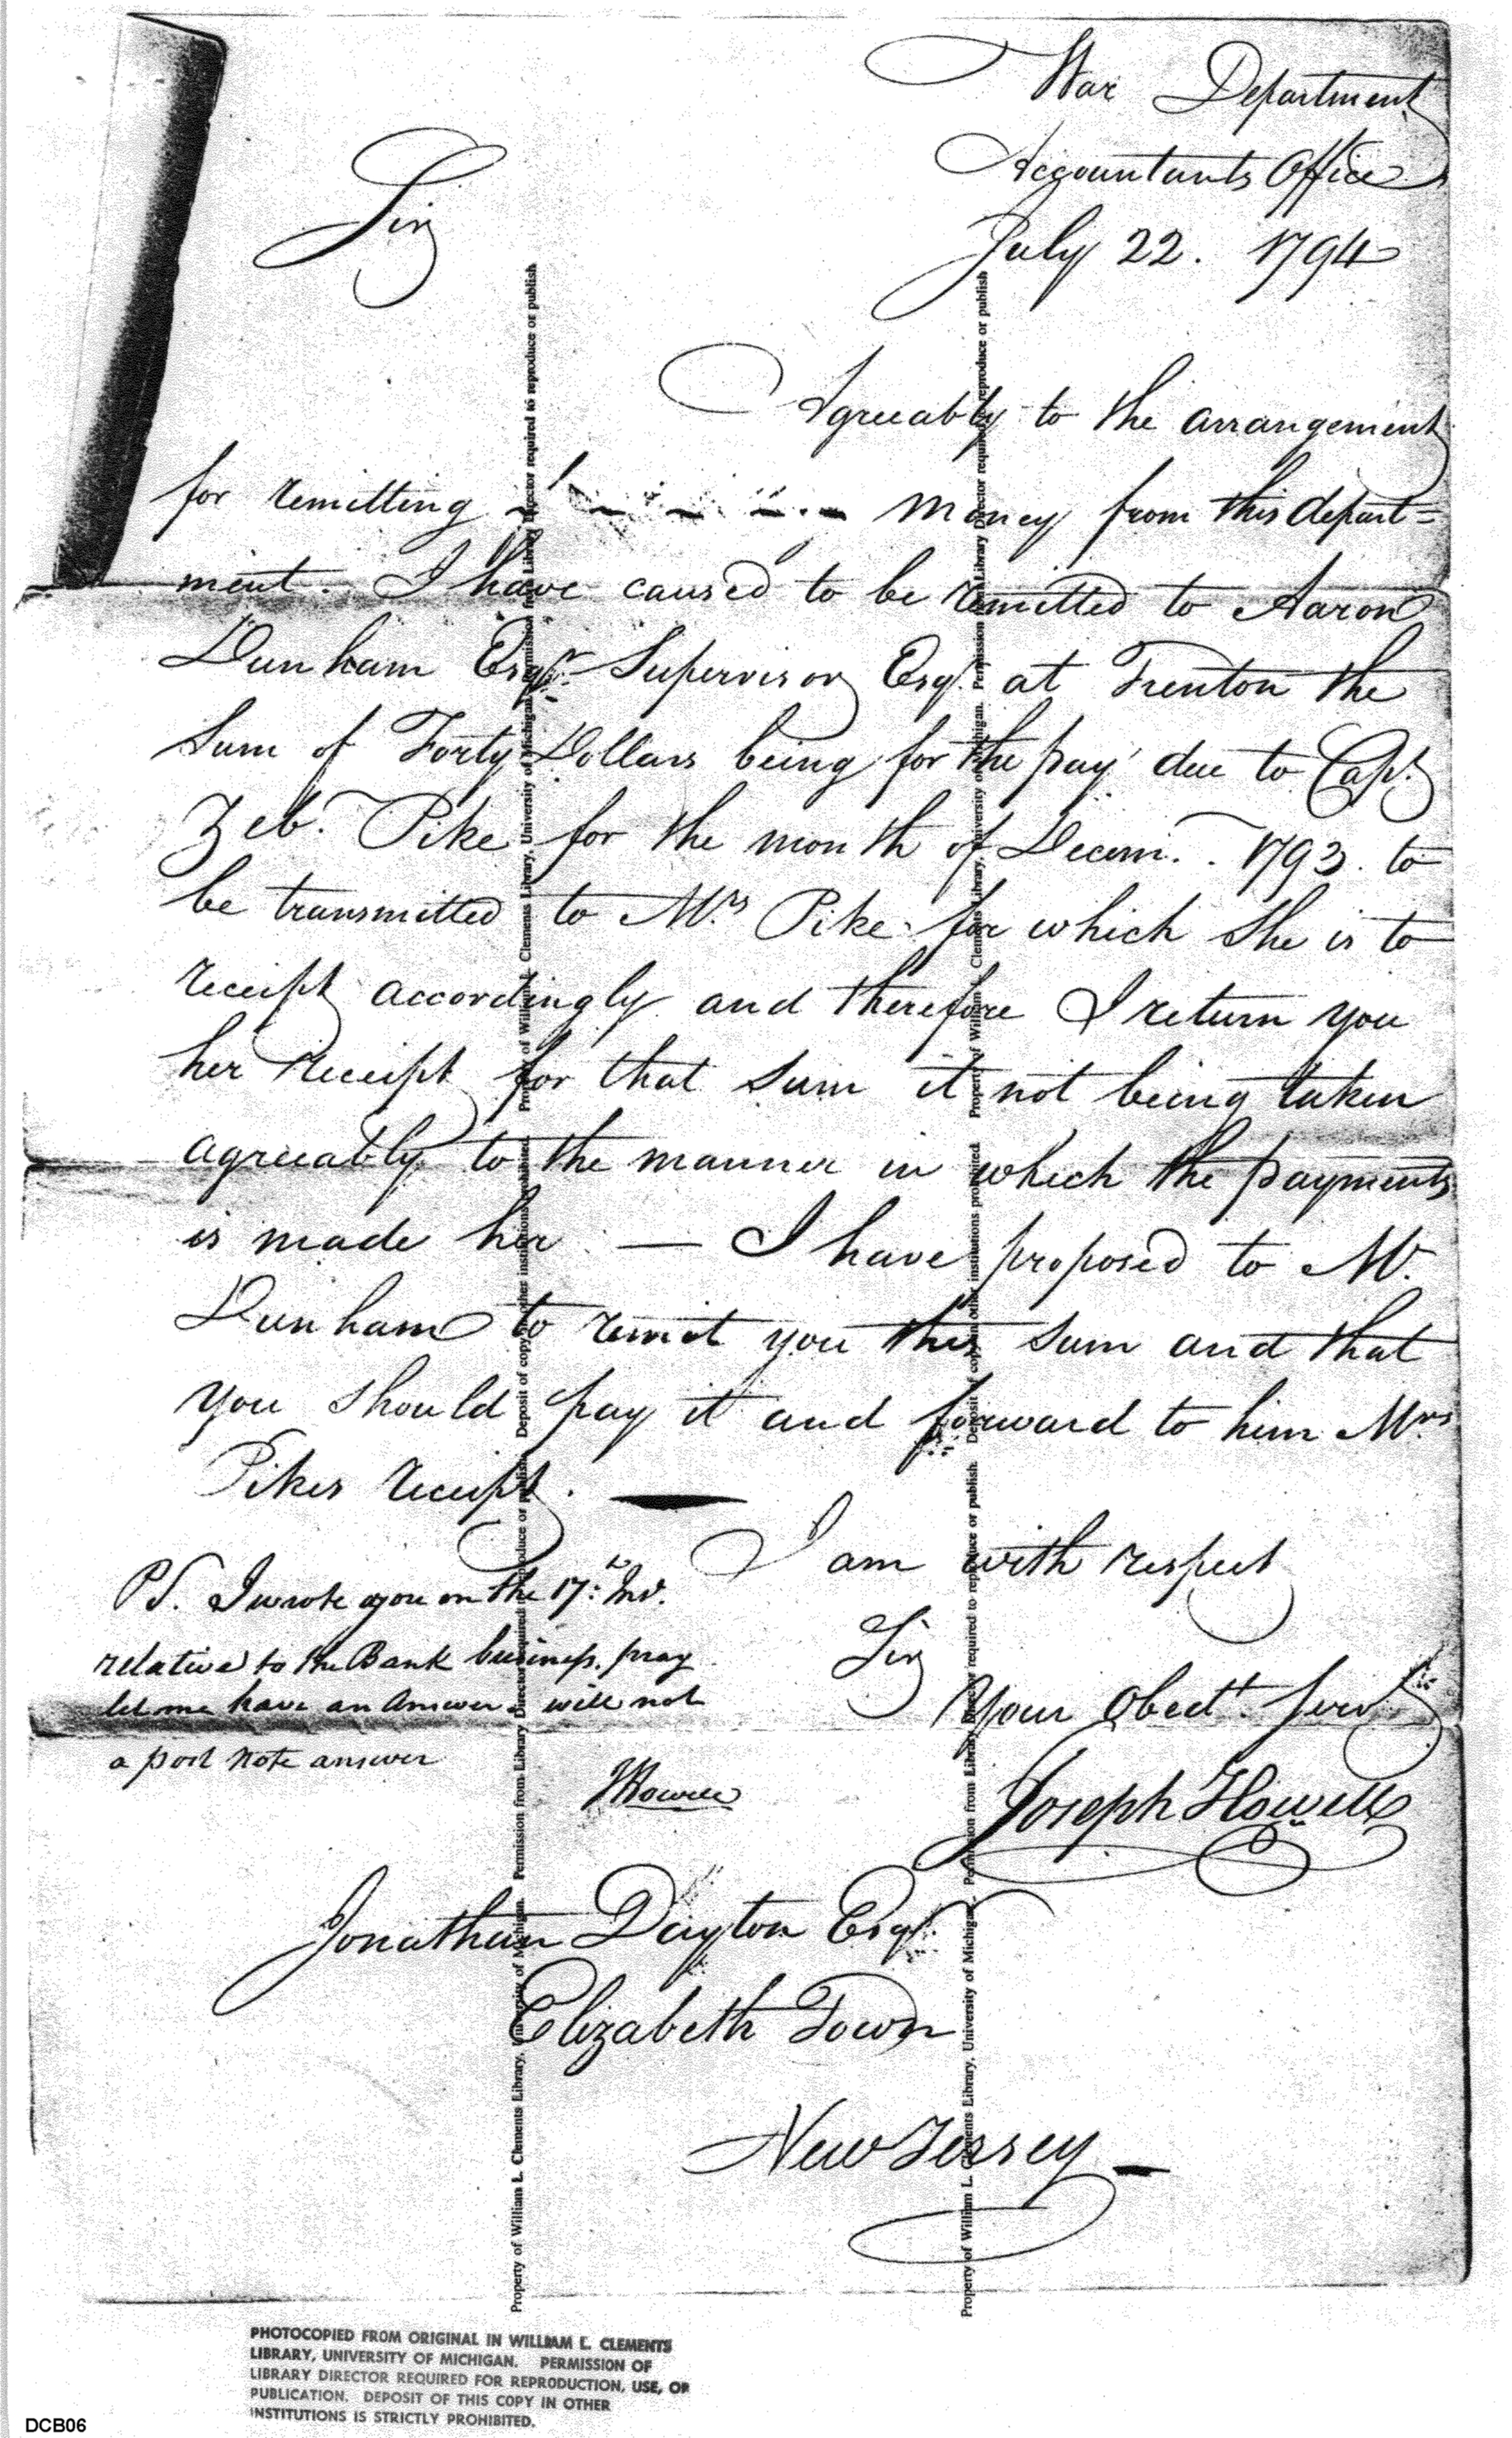 War Department
Accountants Office
July 22. 1794
Sir
Agreeably to the arrangement
for remitting money from this depart=
ment. I have caused to be remitted to Aaron
Dunham Esqr. Supervisor Esqr. at Trenton the
Sum of Forty Dollars being for the pay due to Capt.
Zeb. Pike for the month of Decem. 1793. to
be transmitted to Mrs Pike for which She is to
receipt accordingly and therefore I return you
her receipt for that Sum it not being taken
agreeably to the manner in which the payments
is made her — I have proposed to Mr.
Dunham to remit you this sum and that
you should pay it and forward to him Mrs
Pikes receipt. —
I am with respect
Sir
Your Obedt. Servt
Joseph Howell
PS. I wrote you on the 17th. Inst.
relative to the Bank business. pray
let me have an Answer. will not
a post note answer
JHowell
Jonathan Dayton Esqr.
Elizabeth Town
New Jersey —
Property of William L. Clements Library, University of Michigan. Permission from Library Director required to reproduce or publish. Deposit of copy in other institutions prohibited. Property of William L. Clements Library, University of Michigan. Permission from Library Director required to reproduce or publish
Property of William L. Clements Library, University of Michigan. Permission from Library Director required to reproduce or publish. Deposit of copy in other institutions prohibited. Property of William L. Clements Library, University of Michigan. Permission from Library Director required to reproduce or publish
PHOTOCOPIED FROM ORIGINAL IN WILLIAM L. CLEMENTS
LIBRARY, UNIVERSITY OF MICHIGAN. PERMISSION OF
LIBRARY DIRECTOR REQUIRED FOR REPRODUCTION, USE, OR
PUBLICATION. DEPOSIT OF THIS COPY IN OTHER
INSTITUTIONS IS STRICTLY PROHIBITED.
DCB06